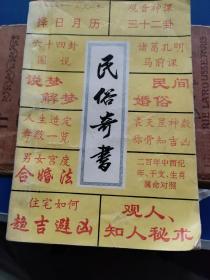 择日月历
观音神课
三十二卦
六十四卦
图说
诸葛孔明
马前课
说梦
解梦
民俗奇书
民间
婚俗
人生造定
寿数一览
袁天罡神数
称骨知吉凶
男女宫度
合婚法
二百年中西纪
年、干支、生肖
属命对照
住宅如何
趋吉避凶
观人、
知人秘术
LAROUSSE